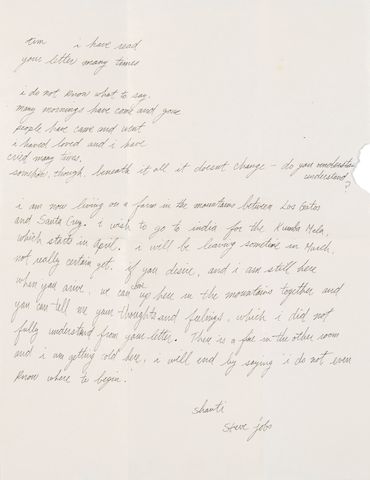 tim i have read
your letter many times
i do not know what to say.
many mornings have come and gone
people have came and went
i have loved and i have
cried many times.
somehow, though, beneath it all it doesnt change - do you
understand
?
i am now living on a farm in the mountains between Los Gatos
and Santa Cruz. i wish to go to india for the Kumba Mela,
which starts in April. i will be leaving sometime in March,
not really certain yet. if you desire, and i am still here
when you arive, we can be up here in the mountains together and
you can tell me your thoughts and feelings, which i did not
fully understand from your letter. There is a fire in the other room
and i am getting cold here, i will end by saying i do not even
know where to begin.
shanti
steve jobs